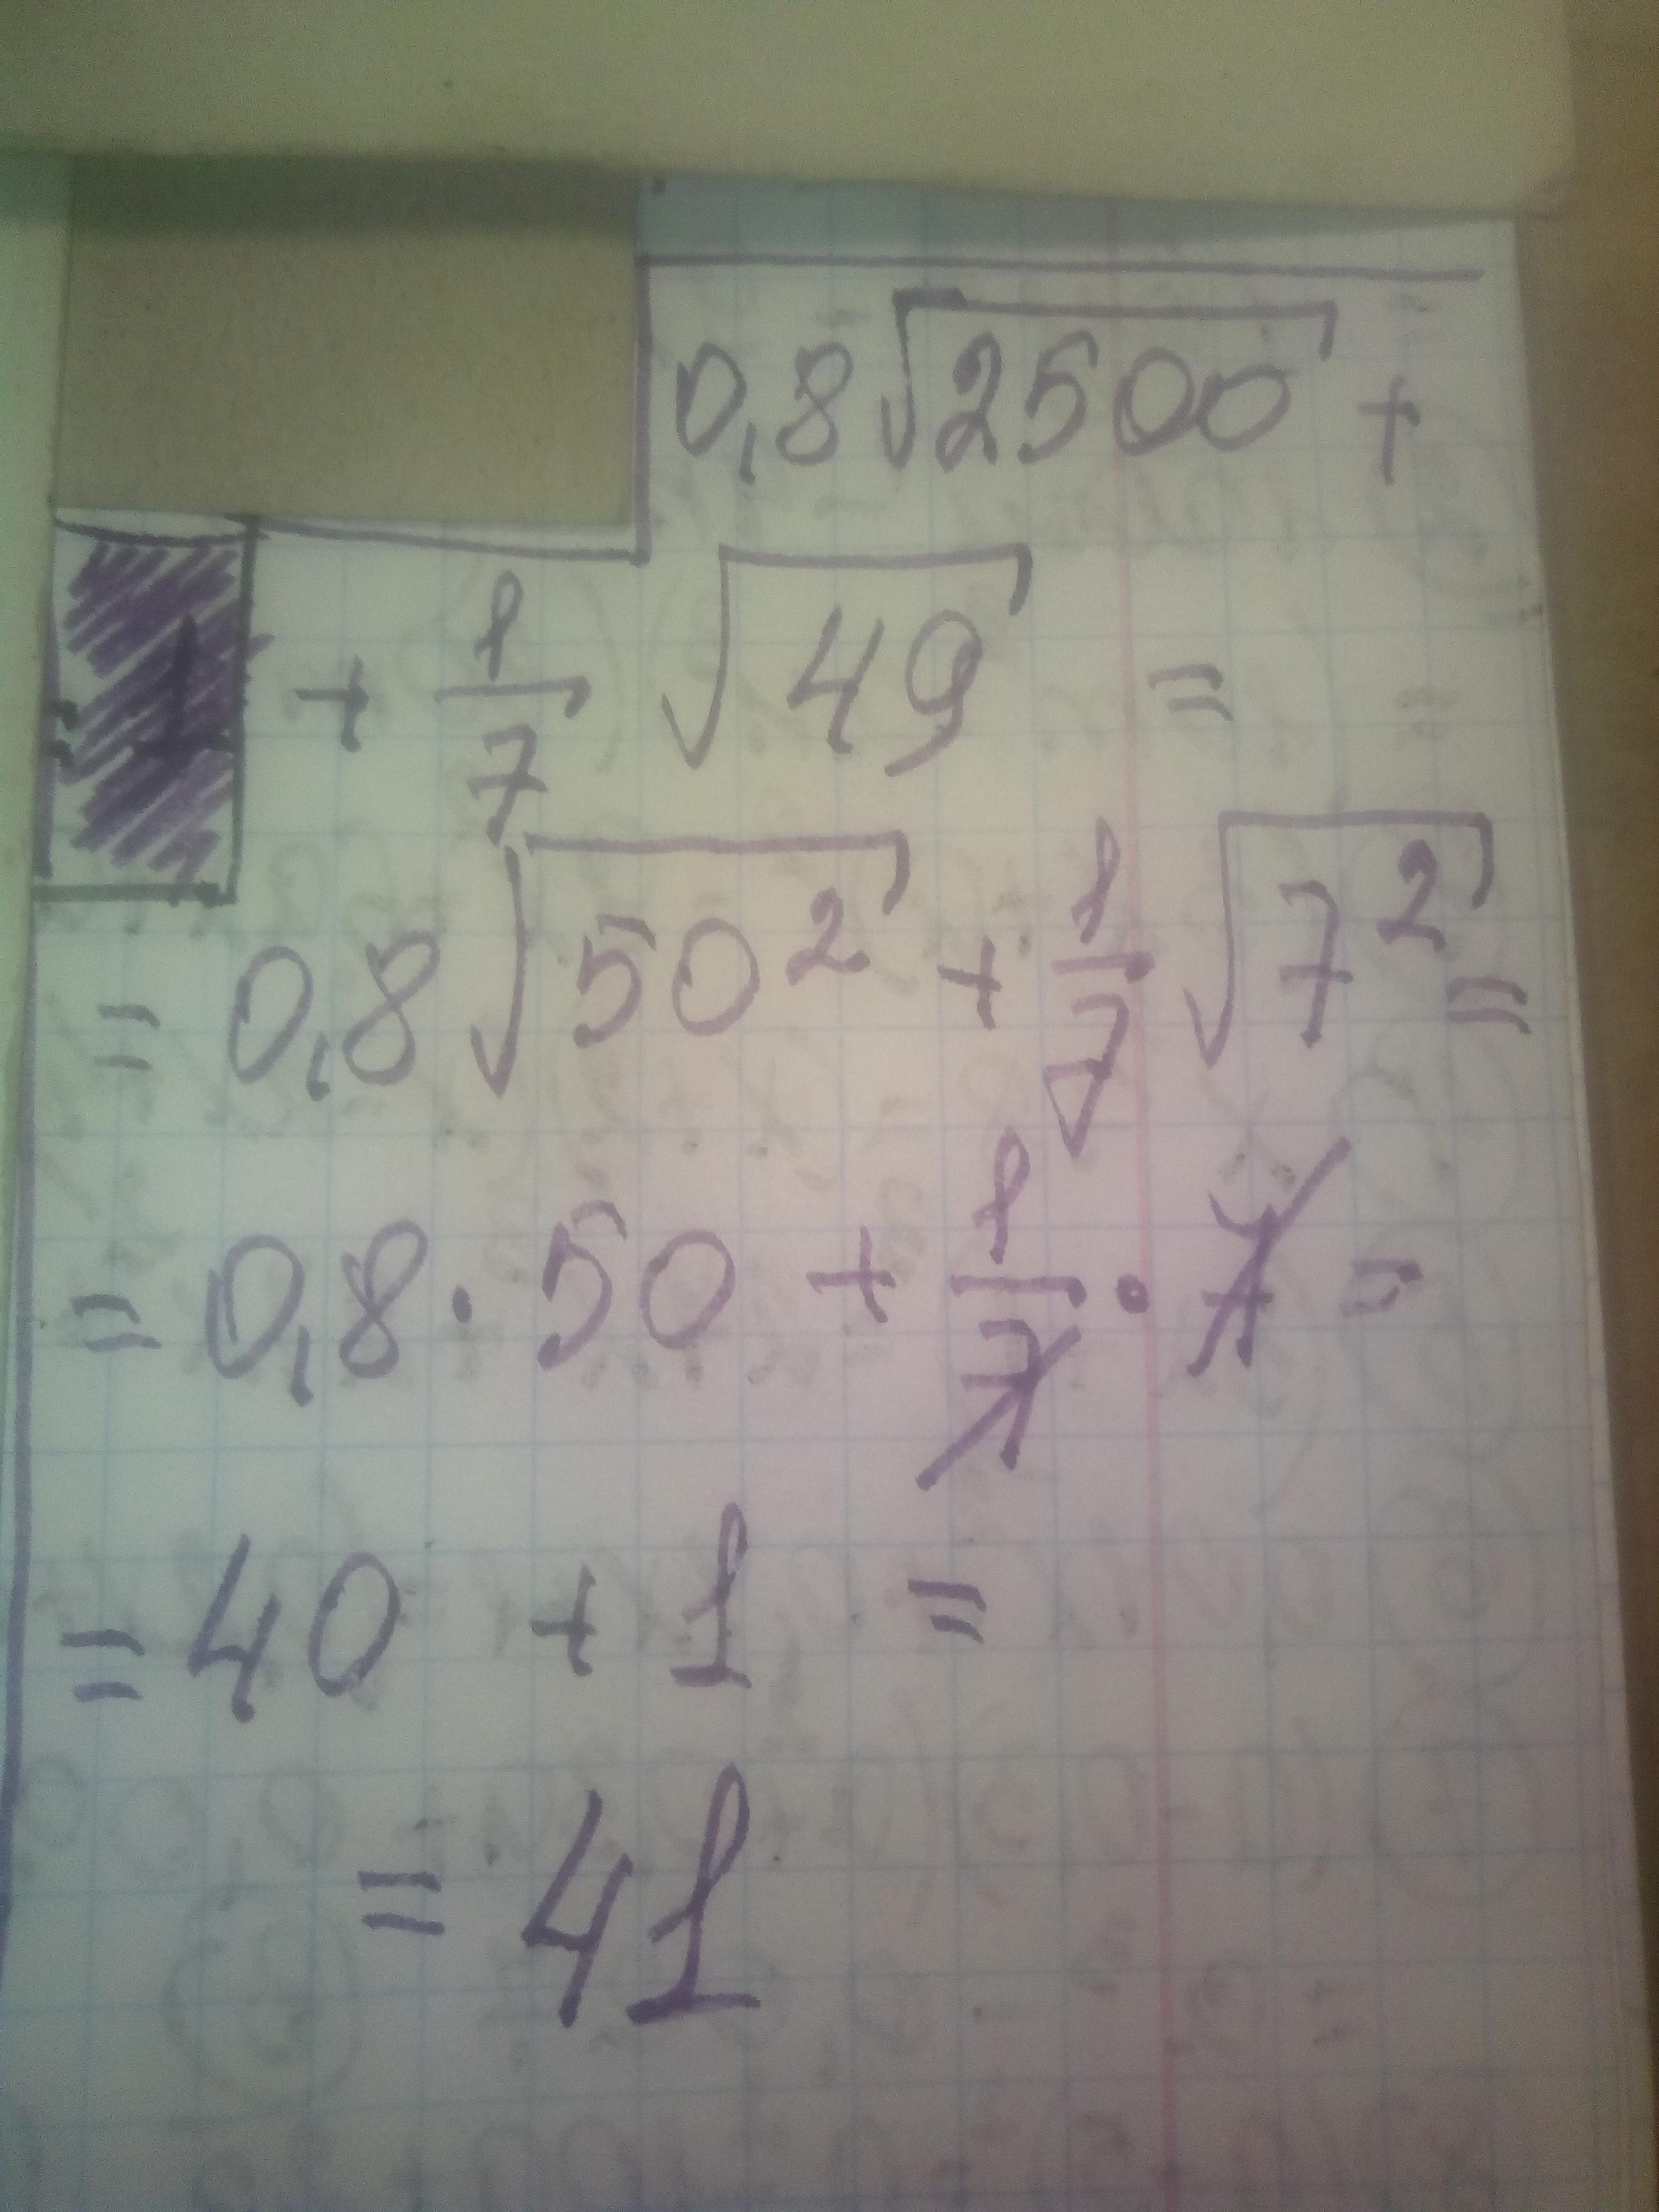 0,8√2500 +
+ 1/7 √49 =
= 0,8√50² + 1/7 √7² =
= 0,8 · 50 + 1/7 · 7 =
= 40 + 1 =
= 41